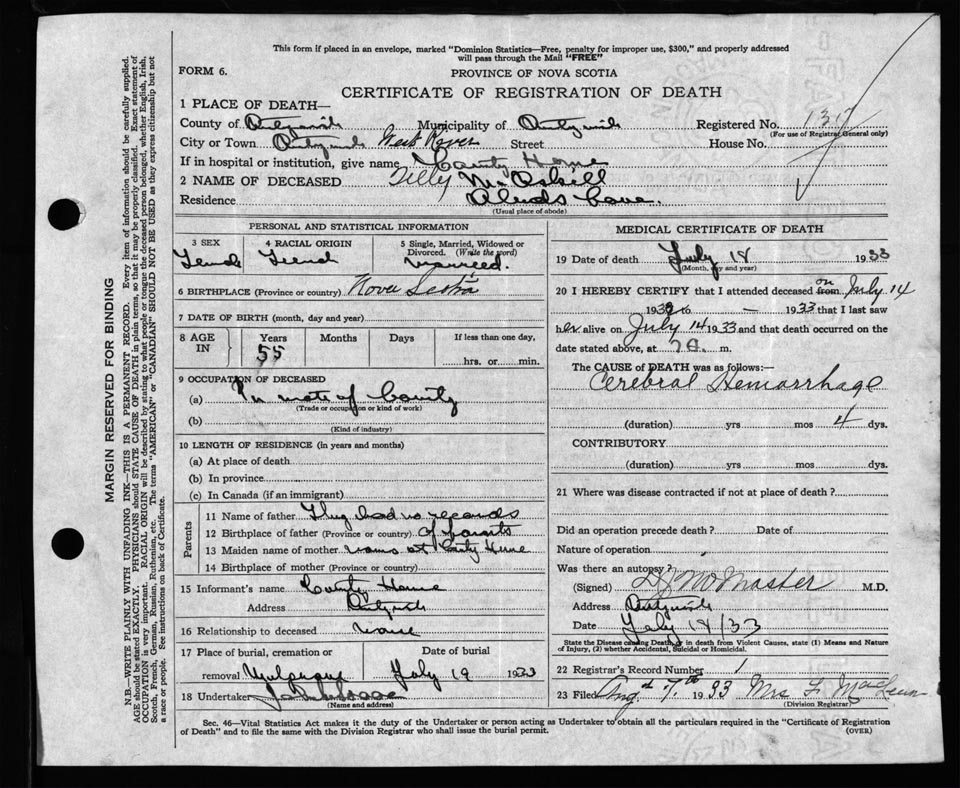 This form if placed in an envelope, marked "Dominion Statistics—Free, penalty for improper use, $300," and properly addressed
will pass through the Mail "FREE"
FORM 6.
PROVINCE OF NOVA SCOTIA
CERTIFICATE OF REGISTRATION OF DEATH
1 PLACE OF DEATH—
County of Antigonish Municipality of Antigonish Registered No. 137
(For use of Registrar General only)
City or Town Antigonish West River Street House No.
If in hospital or institution, give name County Home
2 NAME OF DECEASED Tilly McAskill
Residence Cove.
(Usual place of abode)
PERSONAL AND STATISTICAL INFORMATION
3 SEX 4 RACIAL ORIGIN 5 Single, Married, Widowed or
Divorced. (Write the word)
Female French married.
6 BIRTHPLACE (Province or country) Nova Scotia
7 DATE OF BIRTH (month, day and year)
8 AGE IN Years Months Days If less than one day,
55 hrs. or min.
9 OCCUPATION OF DECEASED
(a) In mate of County
(Trade or occupation or kind of work)
(b)
(Kind of industry)
10 LENGTH OF RESIDENCE (in years and months)
(a) At place of death
(b) In province
(c) In Canada (if an immigrant)
Parents
11 Name of father They had no records
12 Birthplace of father (Province or country) of parents
13 Maiden name of mother name at County Home
14 Birthplace of mother (Province or country)
15 Informant's name County Home
Address Antigonish
16 Relationship to deceased none
17 Place of burial, cremation or Date of burial
removal July 19 1933
18 Undertaker
(Name and address)
MEDICAL CERTIFICATE OF DEATH
19 Date of death July 18 1933
(Month, day and year)
20 I HEREBY CERTIFY that I attended deceased from on July 14
1933 to — 1933 that I last saw
her alive on July 14 1933 and that death occurred on the
date stated above, at m.
The CAUSE of DEATH was as follows:—
Cerebral Hemorrhage
(duration) yrs mos 4 dys.
CONTRIBUTORY
(duration) yrs mos dys.
21 Where was disease contracted if not at place of death?
Did an operation precede death? Date of
Nature of operation
Was there an autopsy?
(Signed) McMaster M.D.
Address Antigonish
Date July 18/33
State the Disease causing Death, or in death from Violent Causes, state (1) Means and Nature
of Injury, (2) whether Accidental, Suicidal or Homicidal.
22 Registrar's Record Number 1
23 Filed Aug 7th 1933 Mrs
(Division Registrar)
Sec. 46—Vital Statistics Act makes it the duty of the Undertaker or person acting as Undertaker to obtain all the particulars required in the "Certificate of Registration
of Death" and to file the same with the Division Registrar who shall issue the burial permit. (OVER)
MARGIN RESERVED FOR BINDING
N.B.—WRITE PLAINLY WITH UNFADING INK—THIS IS A PERMANENT RECORD. Every item of information should be carefully supplied.
AGE should be stated EXACTLY. PHYSICIANS should STATE CAUSE OF DEATH in plain terms, so that it may be properly classified. Exact statement of
OCCUPATION is very important. RACIAL ORIGIN will be described by stating to what people or tongue the deceased person belonged, whether English, Irish,
Scotch, French, German, Russian, Ruthenian, etc. The terms "AMERICAN" or "CANADIAN" SHOULD NOT BE USED as they express citizenship but not
a race or people. See instructions on back of Certificate.